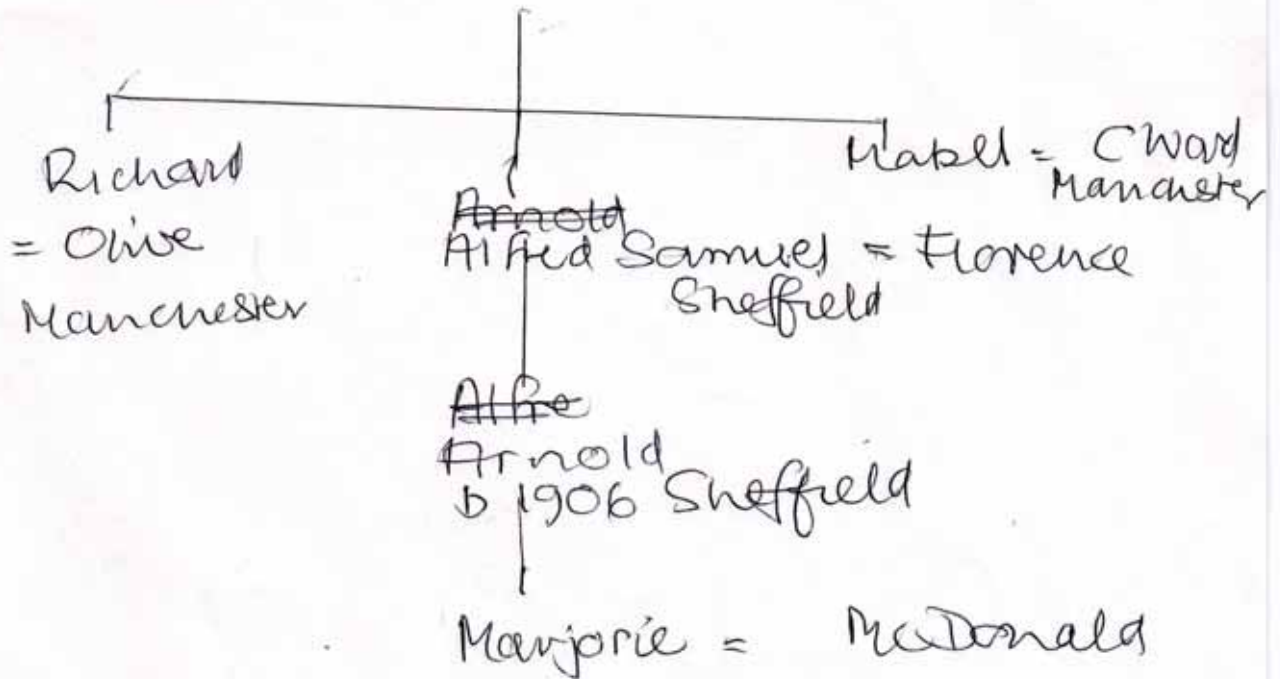 Richard
= Olive
Manchester
Mabel = C Ward
Manchester
Arnold
Alfred Samuel = Florence
Sheffield
Alfre
Arnold
b 1906 Sheffield
Marjorie = McDonald